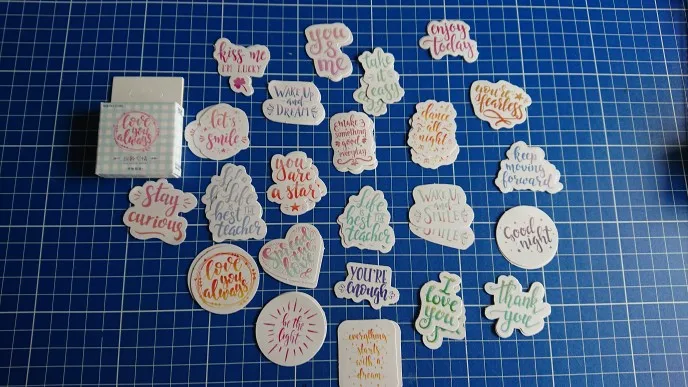 kiss me
I'M LUCKY
you
& me
take
it
easy
enjoy
today
love
you
always
let's
smile
WAKE UP
and
DREAM
make
something
good
everyday
dance
all
night
you're
fearless
keep
moving
forward
stay
curious
Life
is the
best
teacher
you
are
a star
Life
is the
best
teacher
WAKE UP
and
SMILE
SMILE
Good
night
love
you
always
YOU'RE
enough
I
love
you
thank
you
be the
light
everything
starts
with a
dream